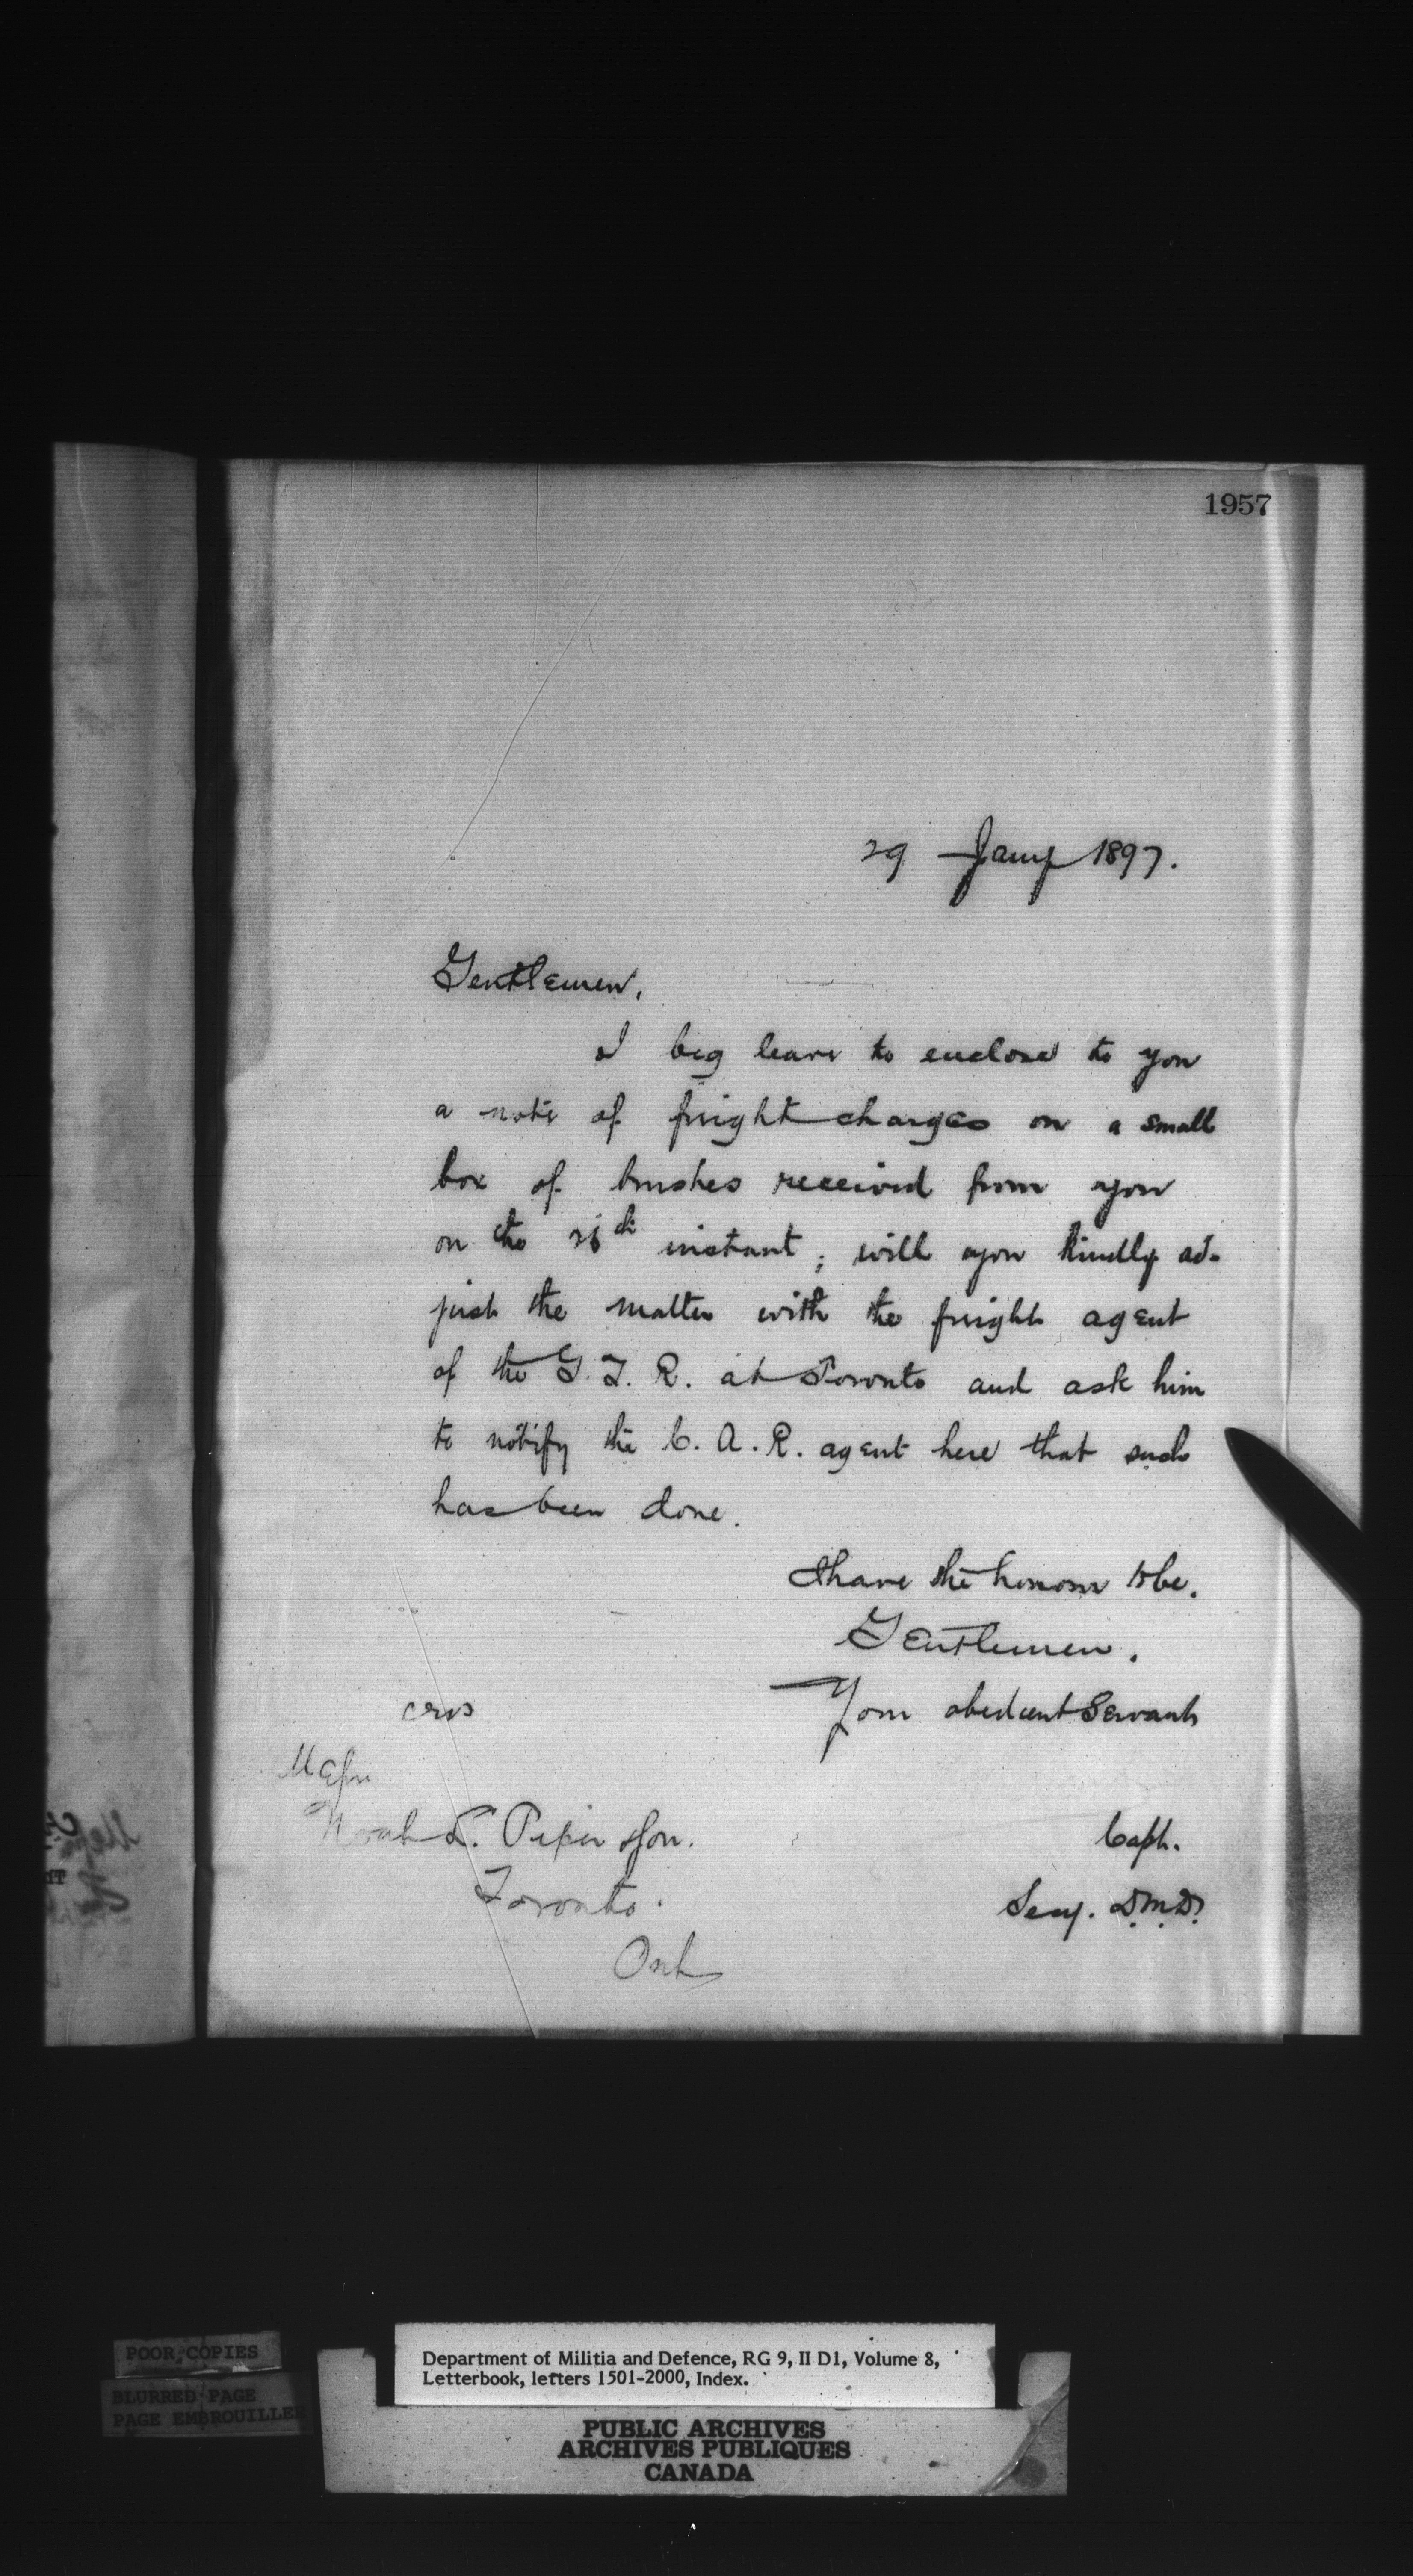 1957
29 Jany 1897.
Gentlemen,
I beg leave to enclose to you
a note of freight charges on a small
box of brushes received from you
on the instant; will you kindly ad-
just the matter with the freight agent
of the G. T. R. at Toronto and ask him
to notify the C. A. R. agent here that such
has been done.
I have the honour to be.
Gentlemen.
Your obedient Servant
Noah L. Piper & Son.
Toronto.
Ont
Capt.
Secy. D.M.D.
Department of Militia and Defence, RG 9, II D1, Volume 8,
Letterbook, letters 1501-2000, Index.
POOR COPIES
BLURRED PAGE
PAGE EMBROUILLEE
PUBLIC ARCHIVES
ARCHIVES PUBLIQUES
CANADA